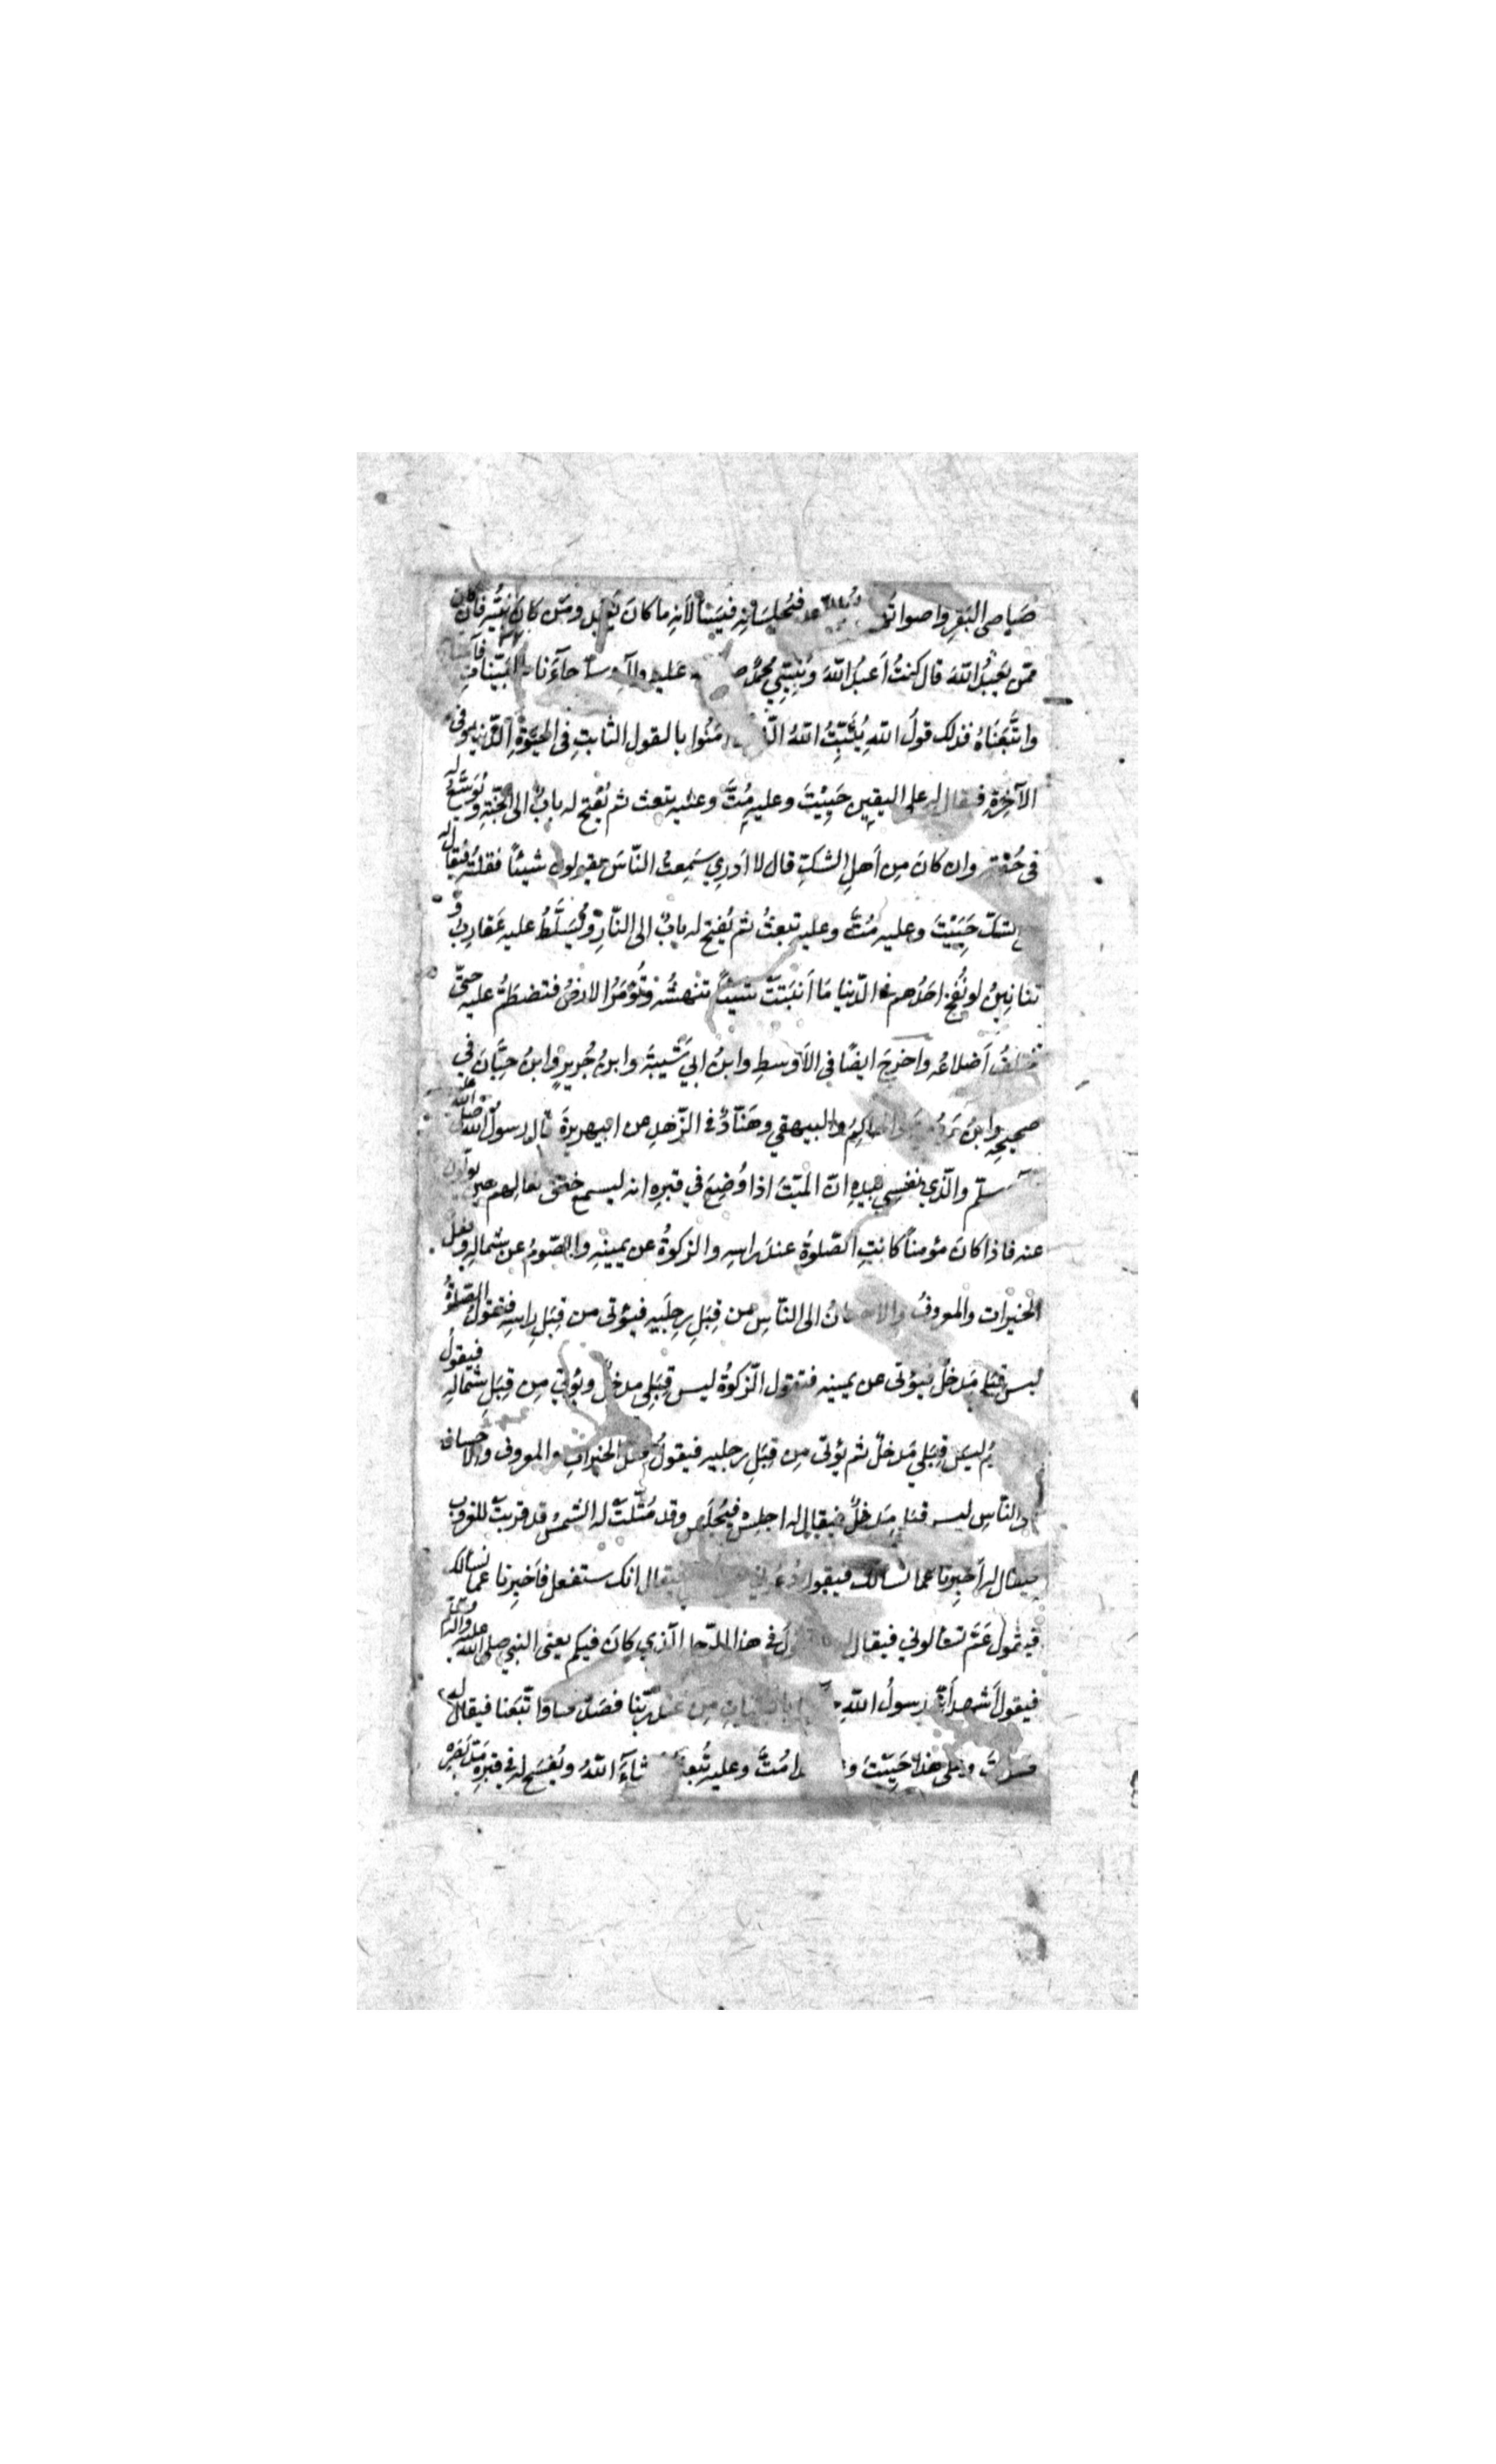 صَياصي البَقَرِ واصواتُ فيُجلِسَانِه فيَسْألانِه ما كانَ يَعْبُد ومَن كان نبيُّه فان كان
ممّن يَعبُدُ اللهَ قال كنتُ أعبُدُ اللهَ ونَبِيِّي محمّدٌ عليه وآله جآءَنا بالبيّنات فآمنا
واتَّبَعْناهُ فذلك قولُ اللهِ يُثَبِّتُ اللهُ آمَنُوا بالقول الثابتِ فى الحيَوٰةِ الدّنيا وفى
الآخِرَةِ فيقال له على اليقينِ حَيِيْتَ وعليه مُتَّ وعليه تبعث ثم يُفتح له بابٌ الى الجَنّةِ ويُوَسَّعُ له
فى حُفرته وان كانَ مِن أهلِ الشكِّ قال لا أدرِي سَمِعتُ النّاسَ يقولون شيئًا فقلتُه فيُقال له
الشكّ حَيِيْتَ وعليه مُتَّ وعليه تبعثُ ثم يُفتح له بابٌ الى النّارِ ويُسَلَّطُ عليه عَقاربُ و
تنانِينُ لو نُفِخ احَدُهم فى الدّنيا مَا أنبَتَتْ شيئًا تنهشُه وتُؤمَرُ الارضُ فتضطَمُّ عليه حتّى
تختلفَ أضلاعُه واخرجَ ايضًا فى الأوسطِ وابنُ ابي شَيبةَ وابنُ جُريرٍ وابنُ حِبَّانَ في
صحيحِه وابنُ والحاكِمُ والبيهقي وهَنّادٌ فى الزّهدِ عن ابيهريرةَ قال رسولُ الله صلى الله عليه
وسلّم والّذي نفسِي بيدِه انّ الميّتَ اذا وُضِعَ في قبرِه انه ليسمع خفق نعالِهم حين يولّون
عنه فاذا كانَ مؤمناً كانتِ الصّلوةُ عندَ راسِه والزكوةُ عن يمينِه والصّومُ عن شمالِه وفعلُ
الخيرات والمعروفُ والاحسانُ الى النّاسِ من قِبَلِ رِجلَيه فيؤتى من قِبَلِ راسِه فتقولُ الصّلوةُ
ليس قِبَلِي مَدخلٌ فيؤتى عن يمينِه فتقول الزّكوةُ ليس قِبَلِي مدخلٌ ويؤتى مِن قِبَلِ شِمالِه فيقولُ
الصّومُ ليسَ قِبَلي مَدخلٌ ثم يؤتى مِن قِبَلِ رِجليه فيقولُ فعلُ الخيراتِ والمعروف والاحسان
الى النّاسِ ليس قبلي مَدخلٌ فيقال له اجلِسْ فيُجلَس وقد مُثّلتْ له الشمسُ قد قربتْ للغروبِ
فيقال له أخبِرنا عما نسألك فيقول دعوني فيقال انك ستفعل فأخبِرنا عما نسألك
فيقول عَمَّ تسألوني فيقال له فى هذا الرّجل الّذي كانَ فيكم يعنى النبي صلى الله عليه وآله وسلّم
فيقول أشهد أنّه رسولُ اللهِ بالبيّناتِ مِن عندِ ربّنا فصَدّقنا واتّبَعنا فيقال له
صدقتَ وعلى هذا حَيِيْتَ وعلى هذا مُتَّ وعليه تُبعثُ شآءَ اللهُ ويُفسَح له في قبرِه مَدّ بَصَرِه